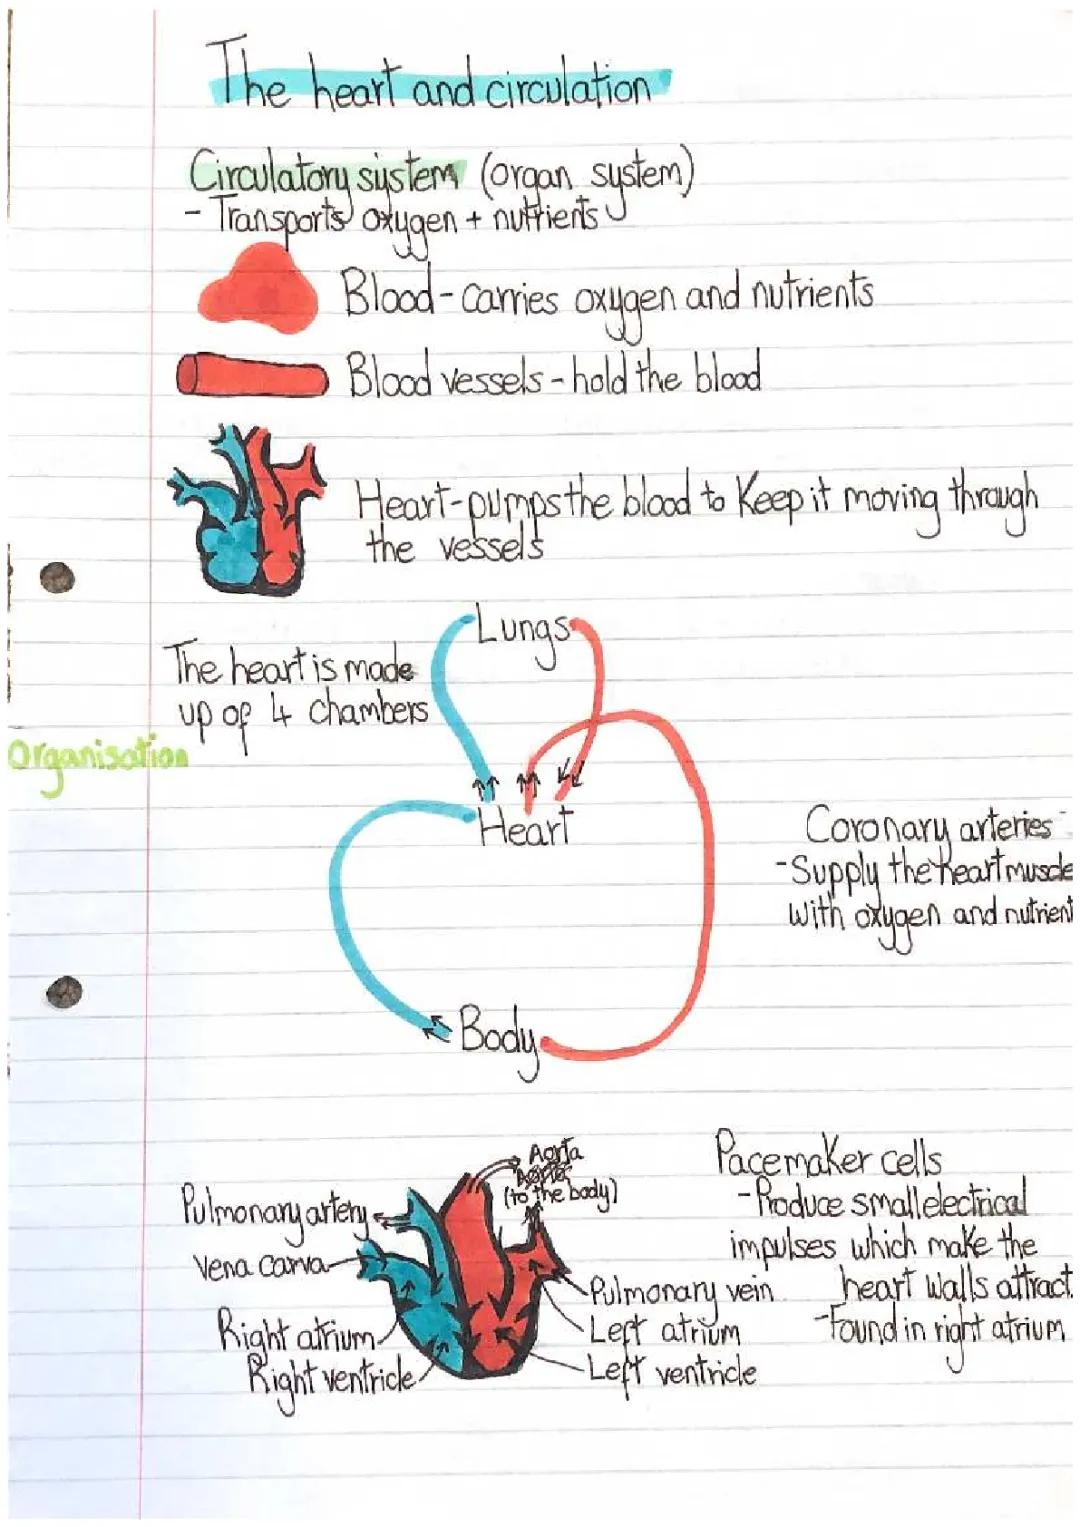 The heart and circulation
Circulatory system (organ system)
- Transports oxygen + nutrients
Blood - carries oxygen and nutrients
Blood vessels - hold the blood
Heart - pumps the blood to Keep it moving through
the vessels
Lungs
The heart is made
up of 4 chambers
Organisation
Heart
Coronary arteries
- Supply the heart muscle
with oxygen and nutrient
Body
Aorta
(to the body)
Pulmonary artery
vena carva
Right atrium
Right ventricle
Pulmonary vein
Left atrium
Left ventricle
Pacemaker cells
- Produce small electrical
impulses which make the
heart walls attract
- Found in right atrium